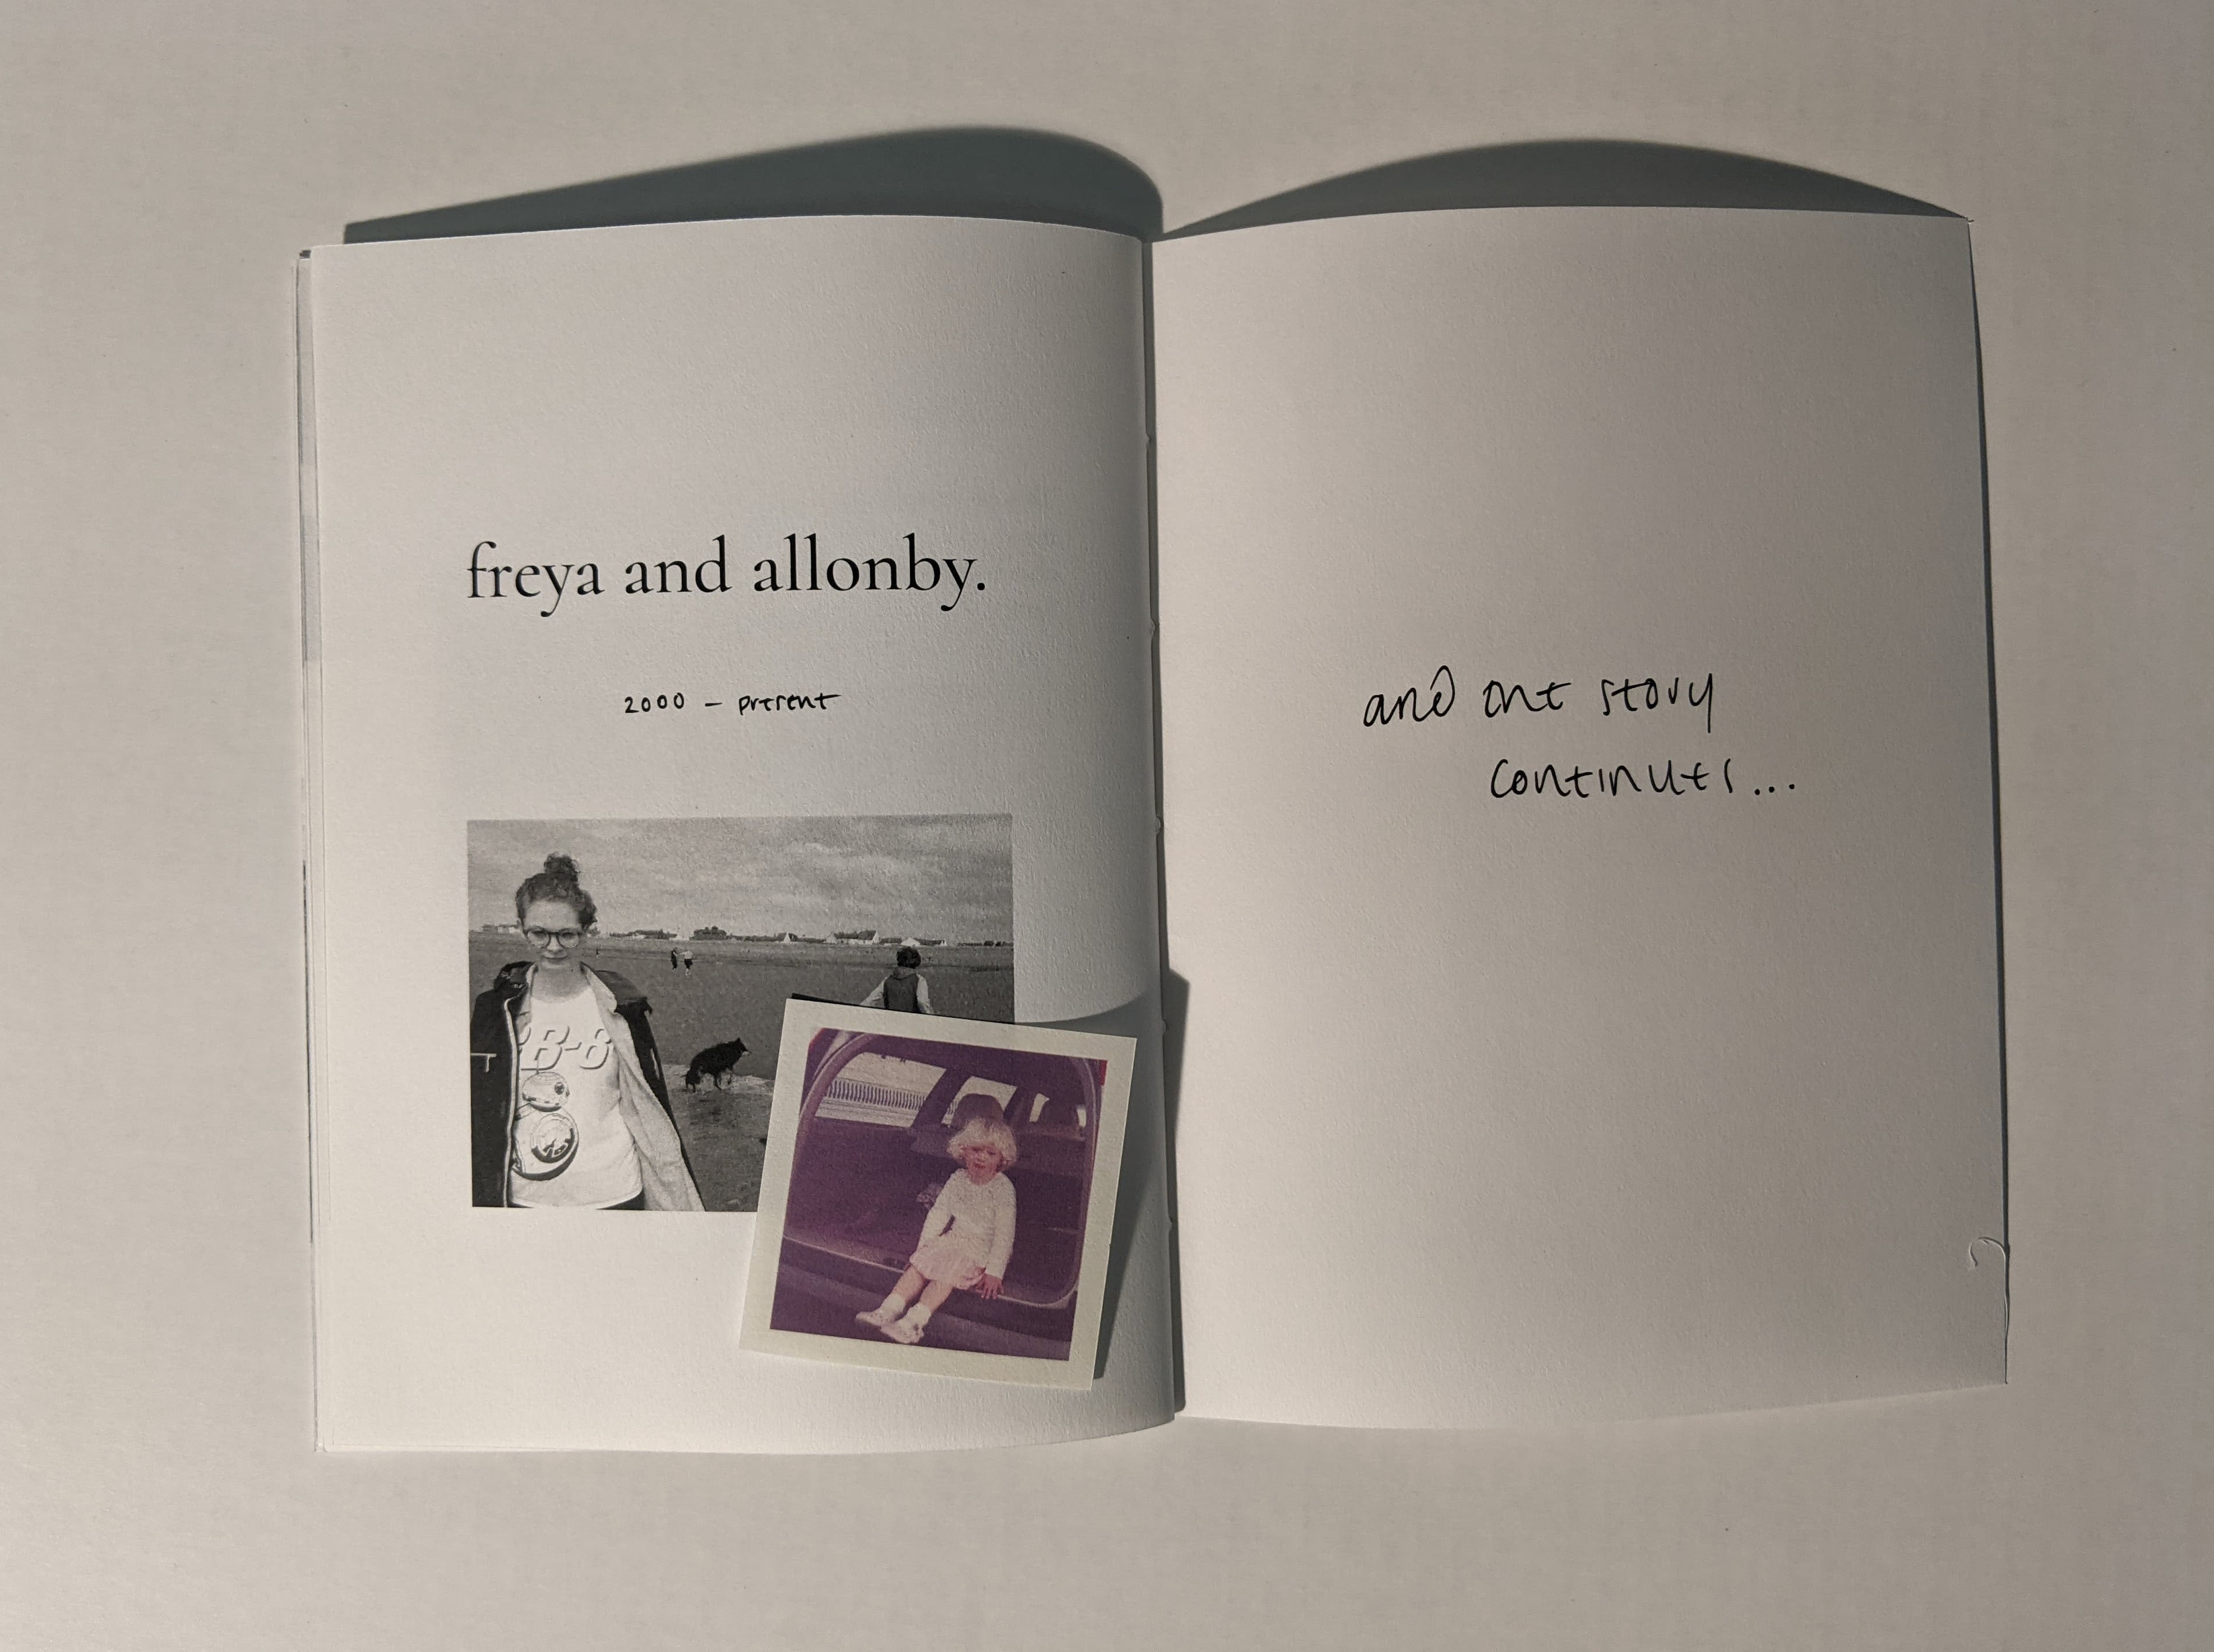 freya and allonby.
2000 – present
BB-8
and one story
continues...